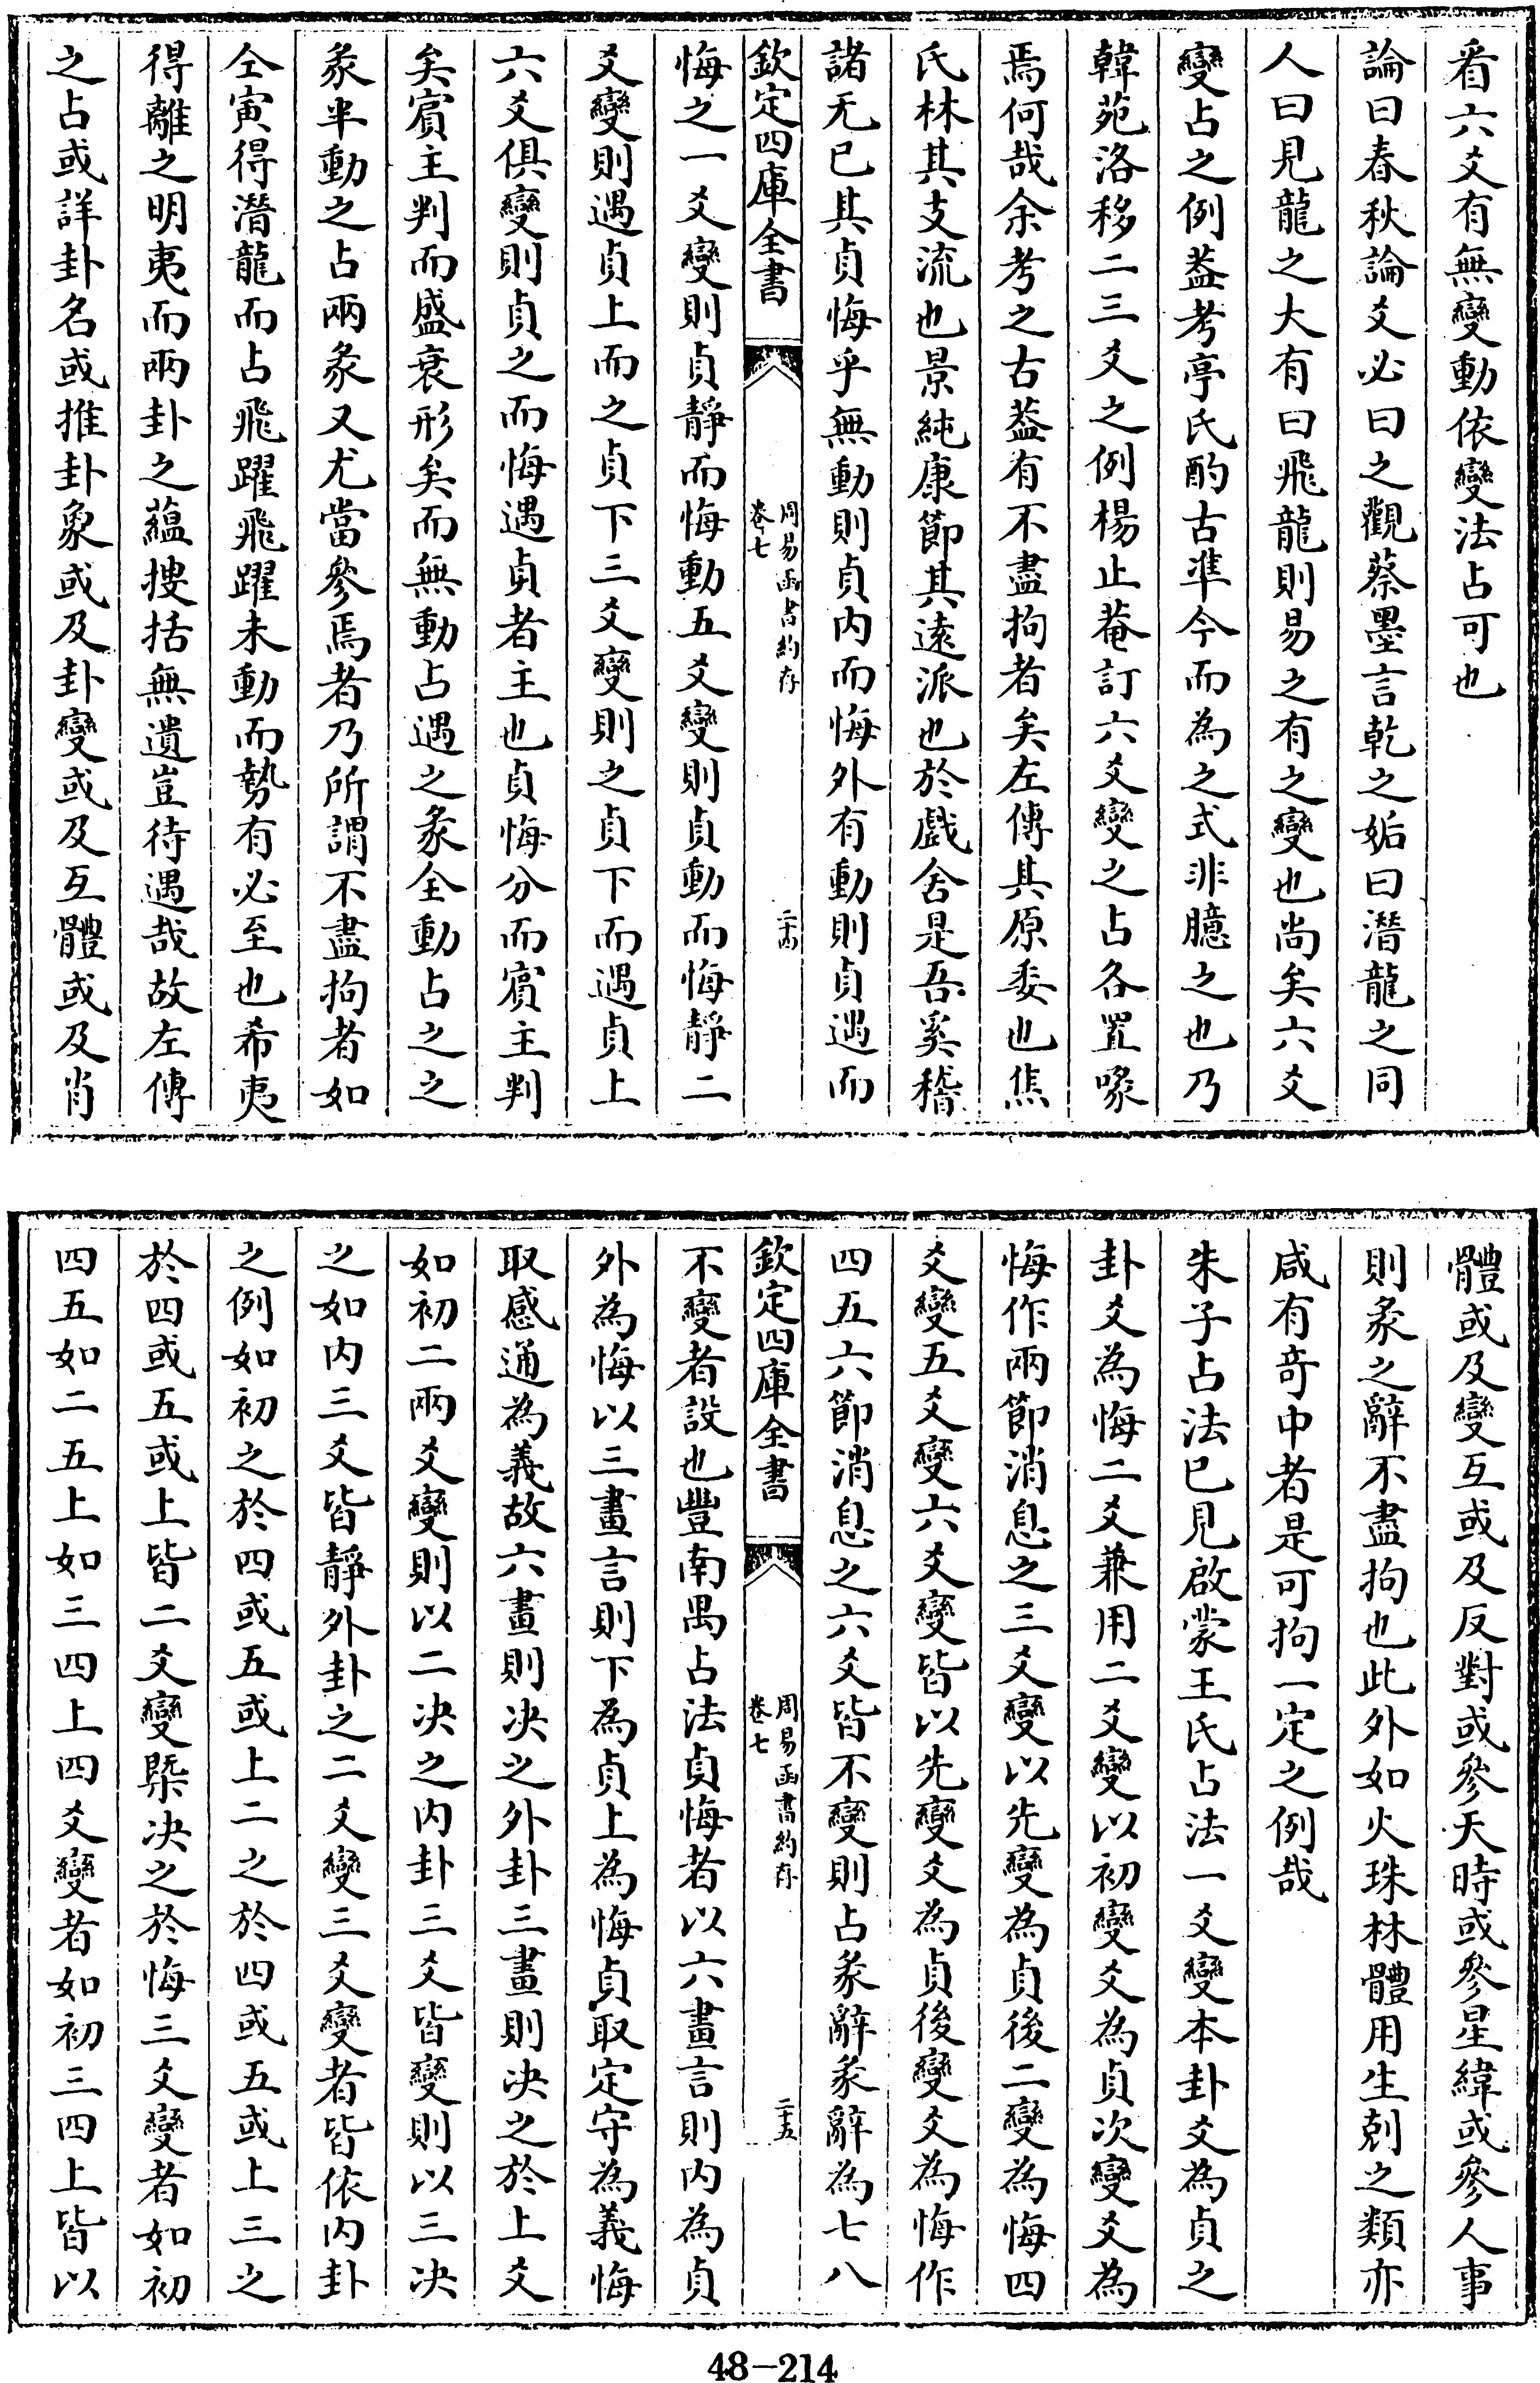 看六爻有無變動依變法占可也
論曰春秋論爻必曰之觀蔡墨言乾之姤曰潛龍之同
人曰見龍之大有曰飛龍則易之有之變也尚矣六爻
變占之例葢考亭氏酌古準今而為之式非臆之也乃
韓苑洛移二三爻之例楊止菴訂六爻變之占各置喙
焉何哉余考之古葢有不盡拘者矣左傳其原委也焦
氏林其支流也景純康節其遠派也於戲舍是吾奚稽
諸无已其貞悔乎無動則貞內而悔外有動則貞遇而
欽定四庫全書
周易函書約存
卷七
二十四
悔之一爻變則貞靜而悔動五爻變則貞動而悔靜二
爻變則遇貞上而之貞下三爻變則之貞下而遇貞上
六爻俱變則貞之而悔遇貞者主也貞悔分而賓主判
矣賓主判而盛衰形矣而無動占遇之彖全動占之之
彖半動之占兩彖又尤當參焉者乃所謂不盡拘者如
仝寅得潛龍而占飛躍飛躍未動而勢有必至也希夷
得離之明夷而兩卦之蘊搜括無遺豈待遇哉故左傳
之占或詳卦名或推卦象或及卦變或及互體或及肖
體或及變互或及反對或參天時或參星緯或參人事
則彖之辭不盡拘也此外如火珠林體用生剋之類亦
咸有竒中者是可拘一定之例哉
朱子占法已見啟蒙王氏占法一爻變本卦爻為貞之
卦爻為悔二爻兼用二爻變以初變爻為貞次變爻為
悔作兩節消息之三爻變以先變為貞後二變為悔四
爻變五爻變六爻變皆以先變爻為貞後變爻為悔作
四五六節消息之六爻皆不變則占彖辭彖辭為七八
欽定四庫全書
周易函書約存
卷七
二十五
不變者設也豐南禺占法貞悔者以六畫言則內為貞
外為悔以三畫言則下為貞上為悔貞取定守為義悔
取感通為義故六畫則決之外卦三畫則決之於上爻
如初二兩爻變則以二決之內卦三爻皆變則以三決
之如內三爻皆靜外卦之二爻變三爻變者皆依內卦
之例如初之於四或五或上二之於四或五或上三之
於四或五或上皆二爻變槩決之於悔三爻變者如初
四五如二五上如三四上四爻變者如初三四上皆以
48-214